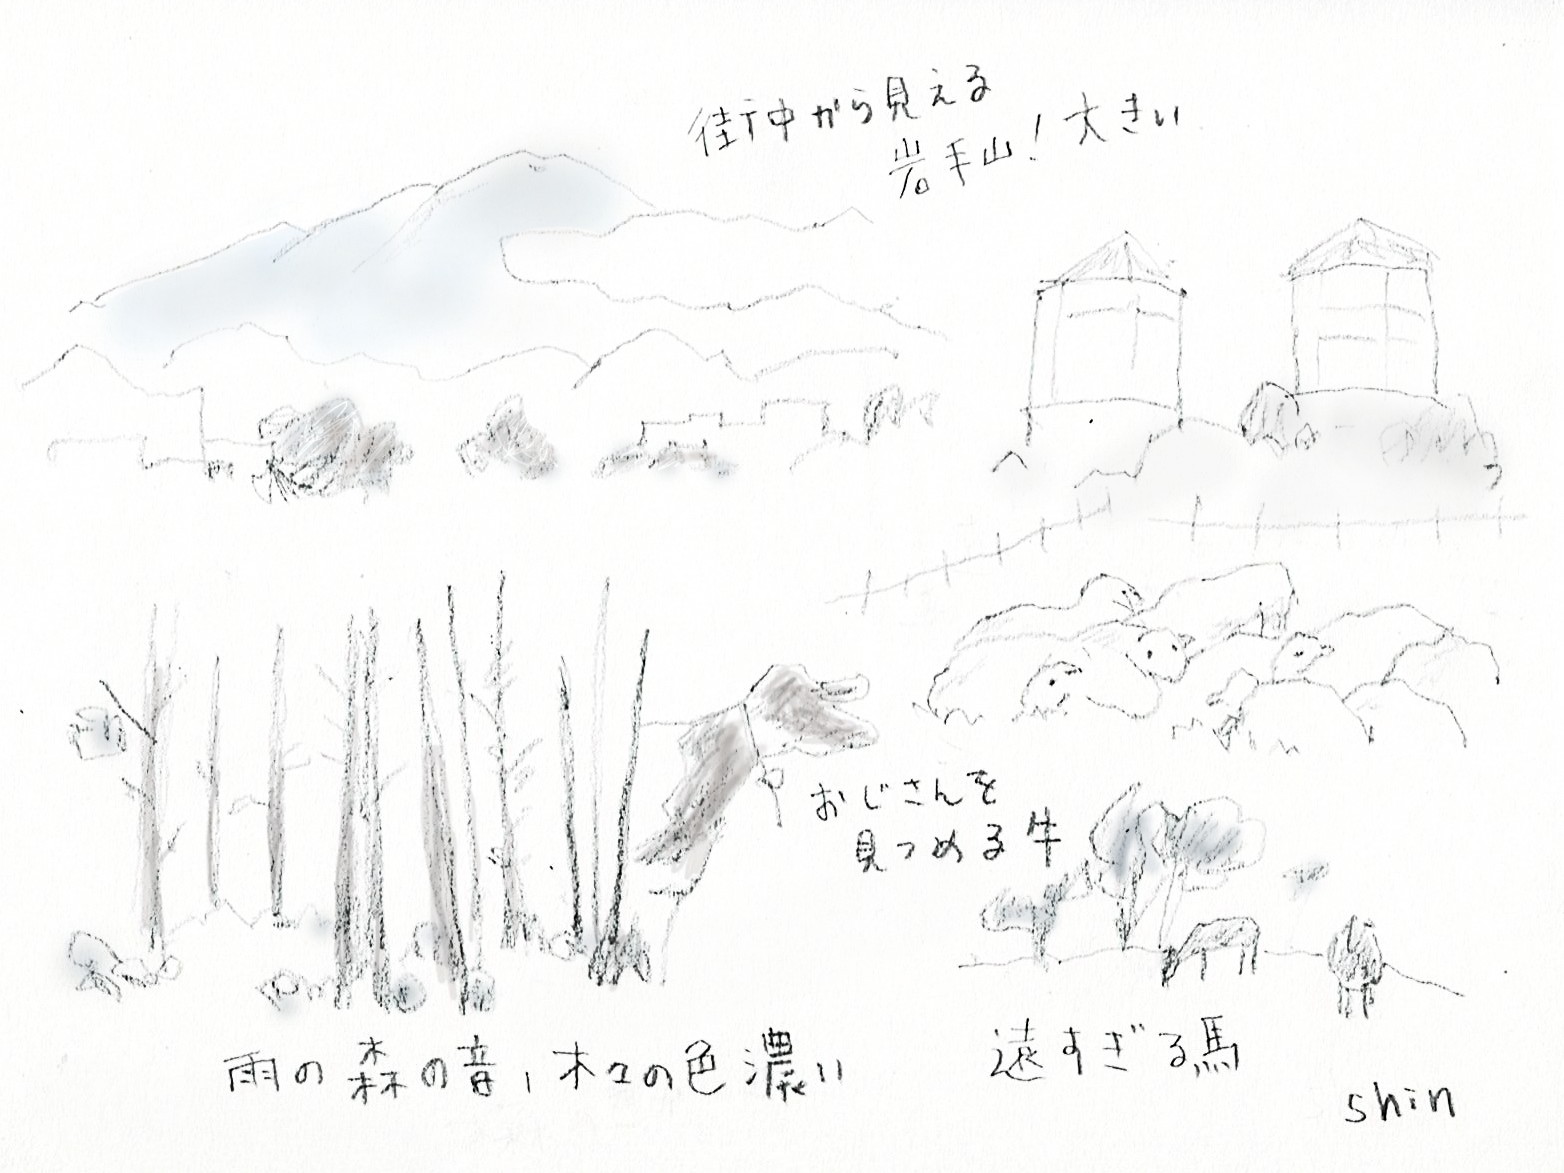 街中から見える
岩手山！大きい
おじさんを
見つめる牛
雨の森の音、木々の色濃い
遠すぎる馬
shin